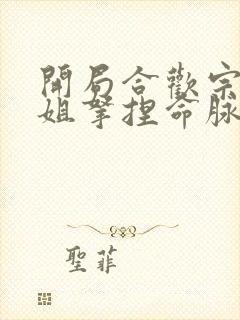 開局合歡宗
姐拏捏命脉
聖菲